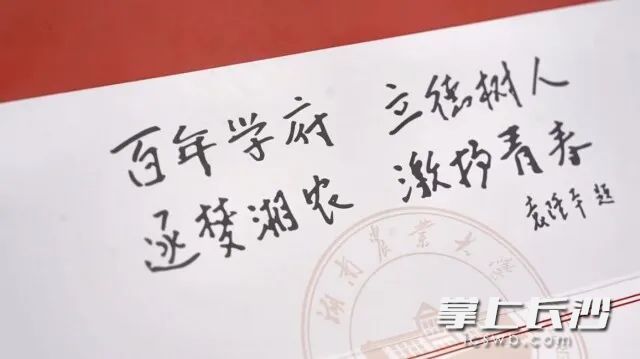 百年学府 立德树人
逐梦湘农 激扬青春
袁隆平题
湖南農業大學
掌上长沙
icswb.com